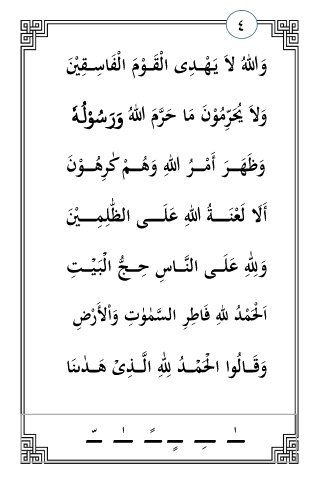 ٤
وَاللهُ لاَ يَهْدِى الْقَوْمَ الْفَاسِقِيْنَ
وَلاَ يُحَرِّمُوْنَ مَا حَرَّمَ اللهُ وَرَسُوْلُهٗ
وَظَهَرَ أَمْرُ اللهِ وَهُمْ كٰرِهُوْنَ
أَلَا لَعْنَةُ اللهِ عَلَى الظّٰلِمِيْنَ
وَلِلّٰهِ عَلَى النَّاسِ حِجُّ الْبَيْتِ
اَلْحَمْدُ لِلهِ فَاطِرِ السَّمٰوٰتِ وَاْلأَرْضِ
وَقَالُوا الْحَمْدُ لِلّٰهِ الَّذِىْ هَدٰىنَا